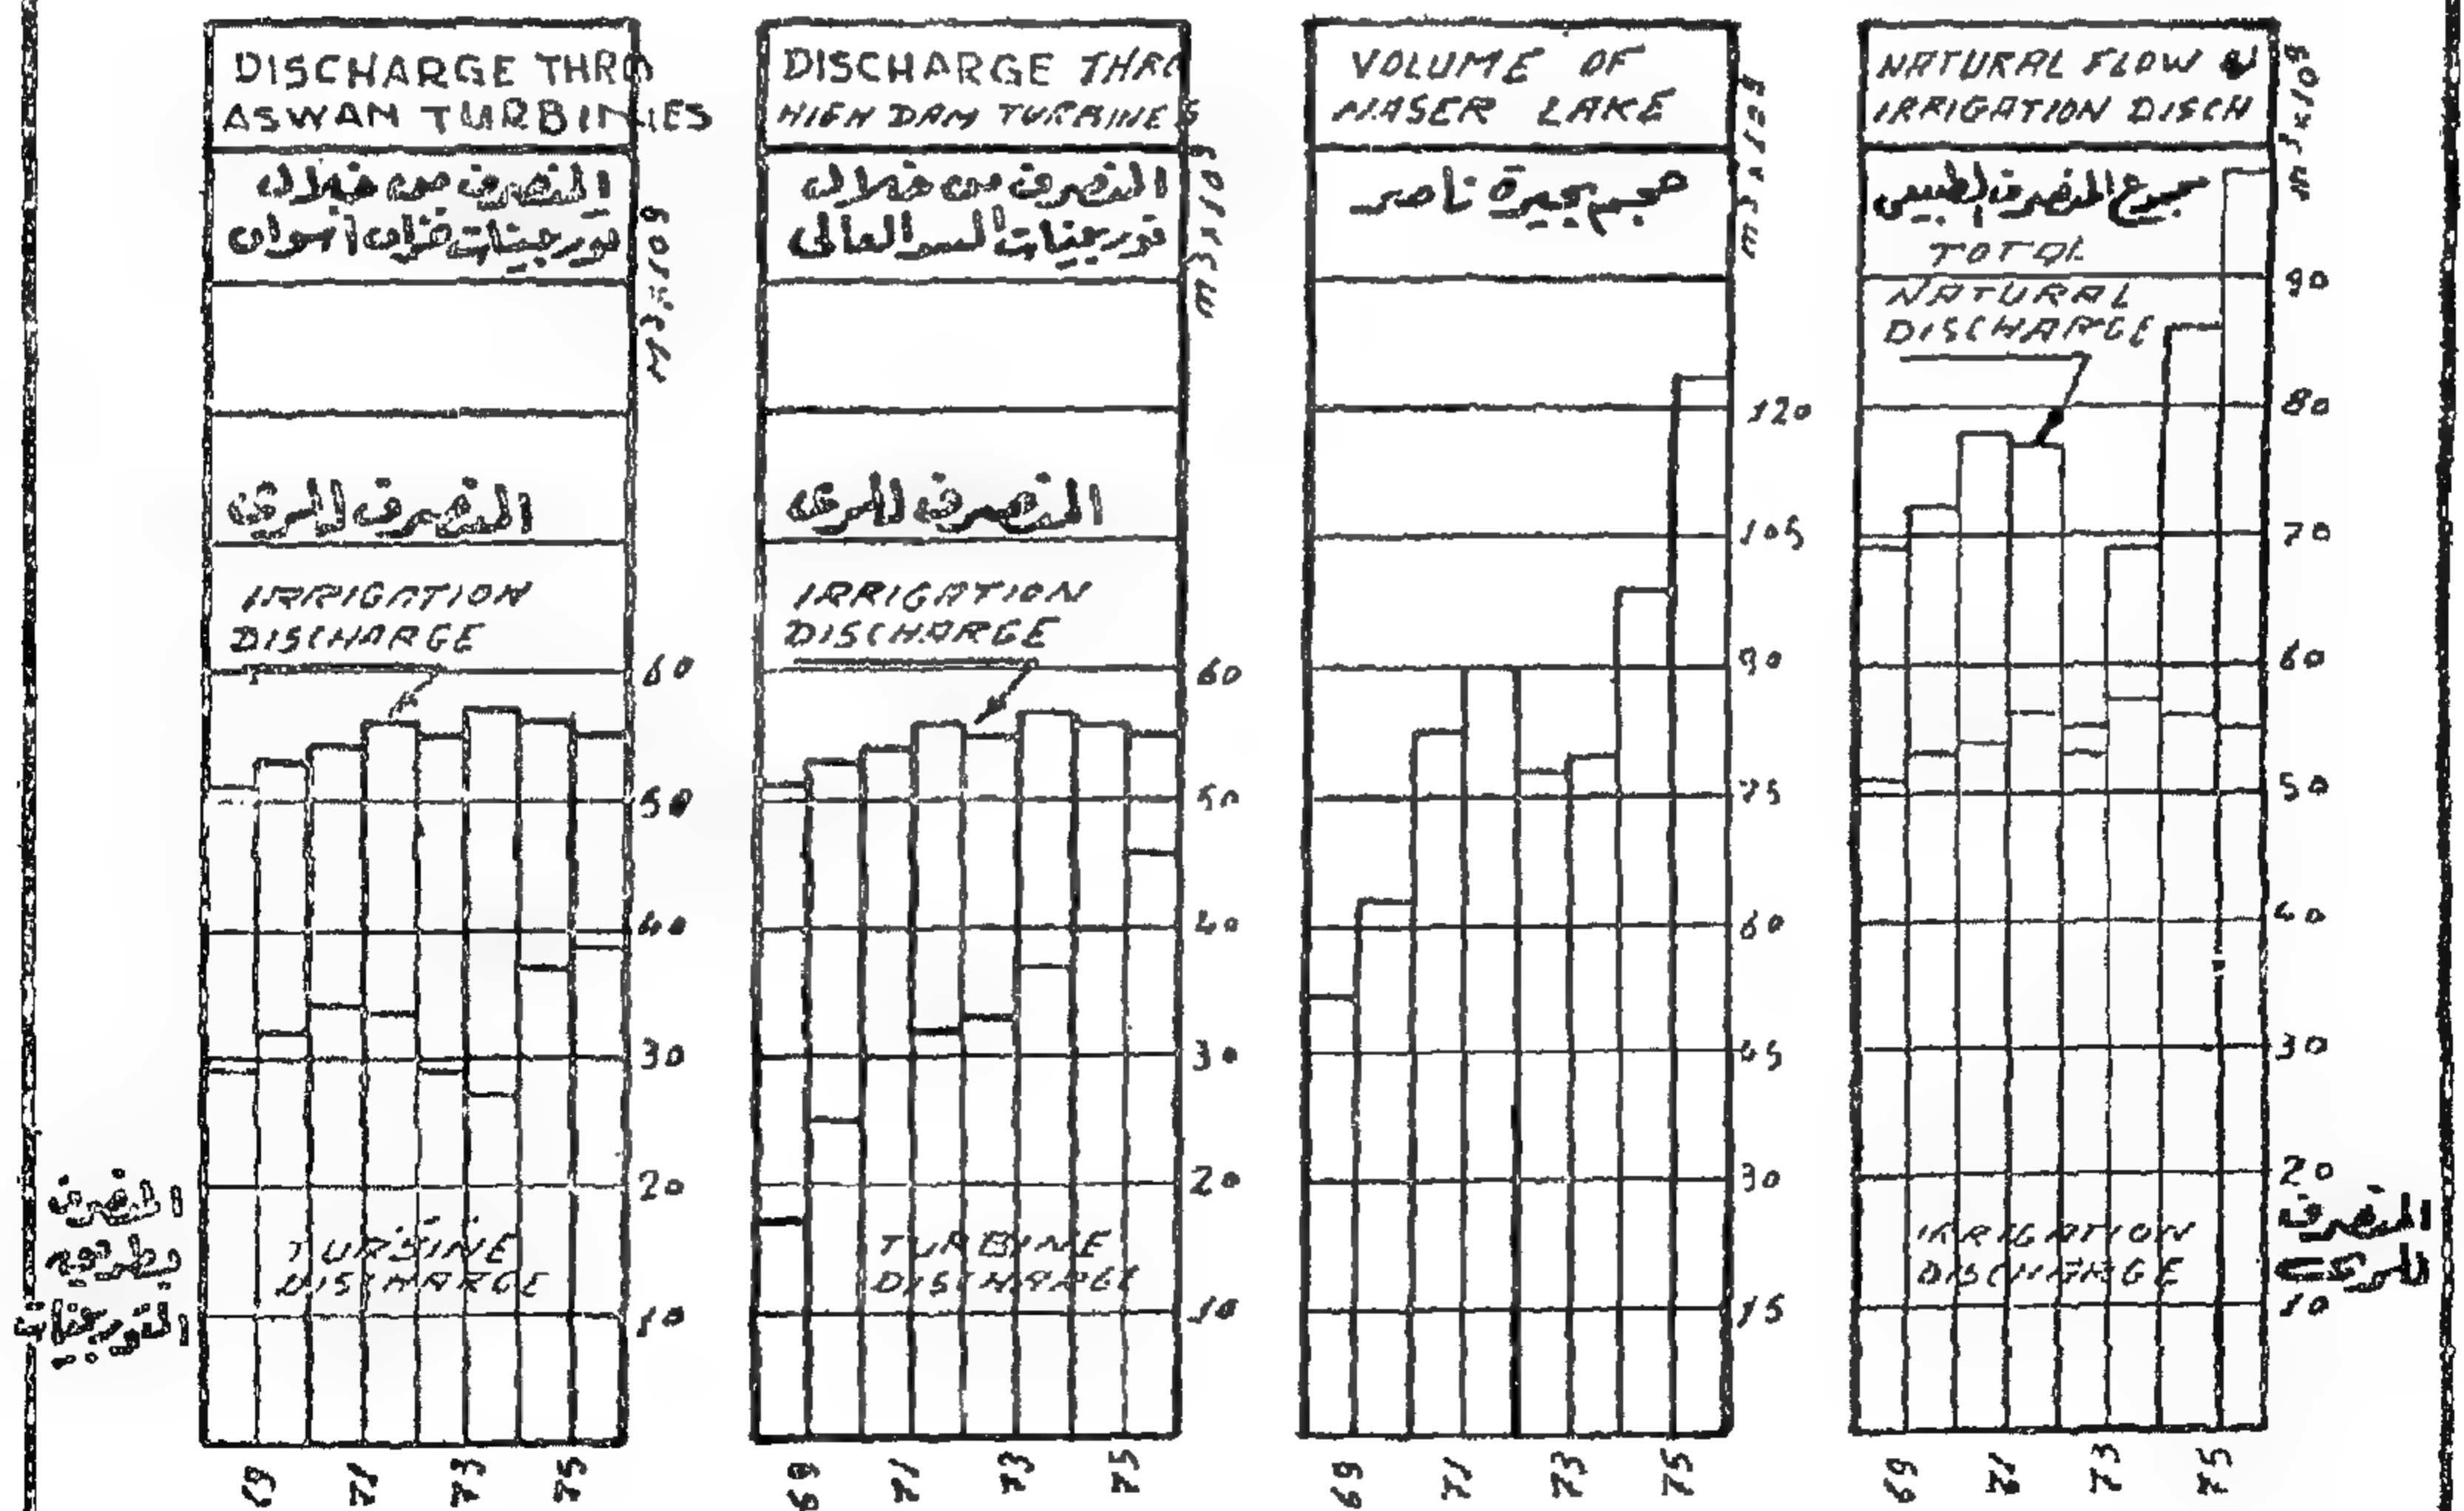 DISCHARGE THRO
ASWAN TURBINES
التصرف من خلال
توربينات خزان أسوان
M3×109
التصرف للرى
IRRIGATION
DISCHARGE
60
50
40
30
20
10
TURBINE
DISCHARGE
التصرف
بطريق
التوربينات
69
71
73
75
DISCHARGE THRO
HIGH DAM TURBINES
التصرف من خلال
توربينات السد العالى
m3×109
التصرف للرى
IRRIGATION
DISCHARGE
60
50
40
30
20
10
TURBINE
DISCHARGE
69
71
73
75
VOLUME OF
NASER LAKE
حجم بحيرة ناصر
120
105
90
75
60
45
30
15
69
71
73
75
NATURAL FLOW
IRRIGATION DISCH
m3×109
التصرف الطبيعى
TOTAL
NATURAL
DISCHARGE
90
80
70
60
50
40
30
20
10
IRRIGATION
DISCHARGE
التصرف
للرى
69
71
73
75